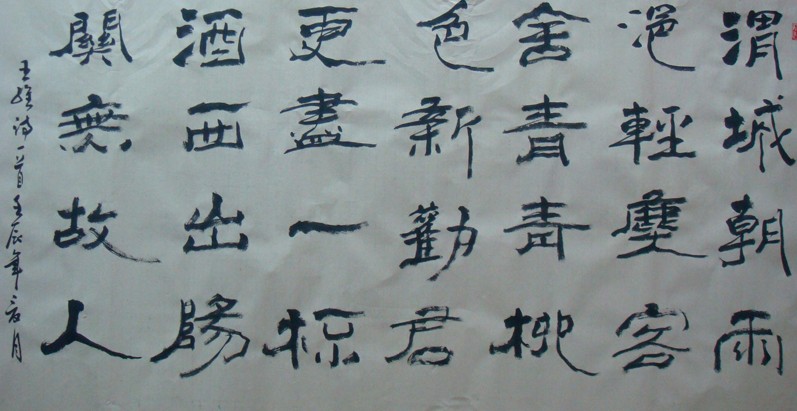 渭城朝雨
浥輕塵客
舍青青柳
色新勸君
更盡一杯
酒西出陽
關無故人
王維诗一首壬辰年月